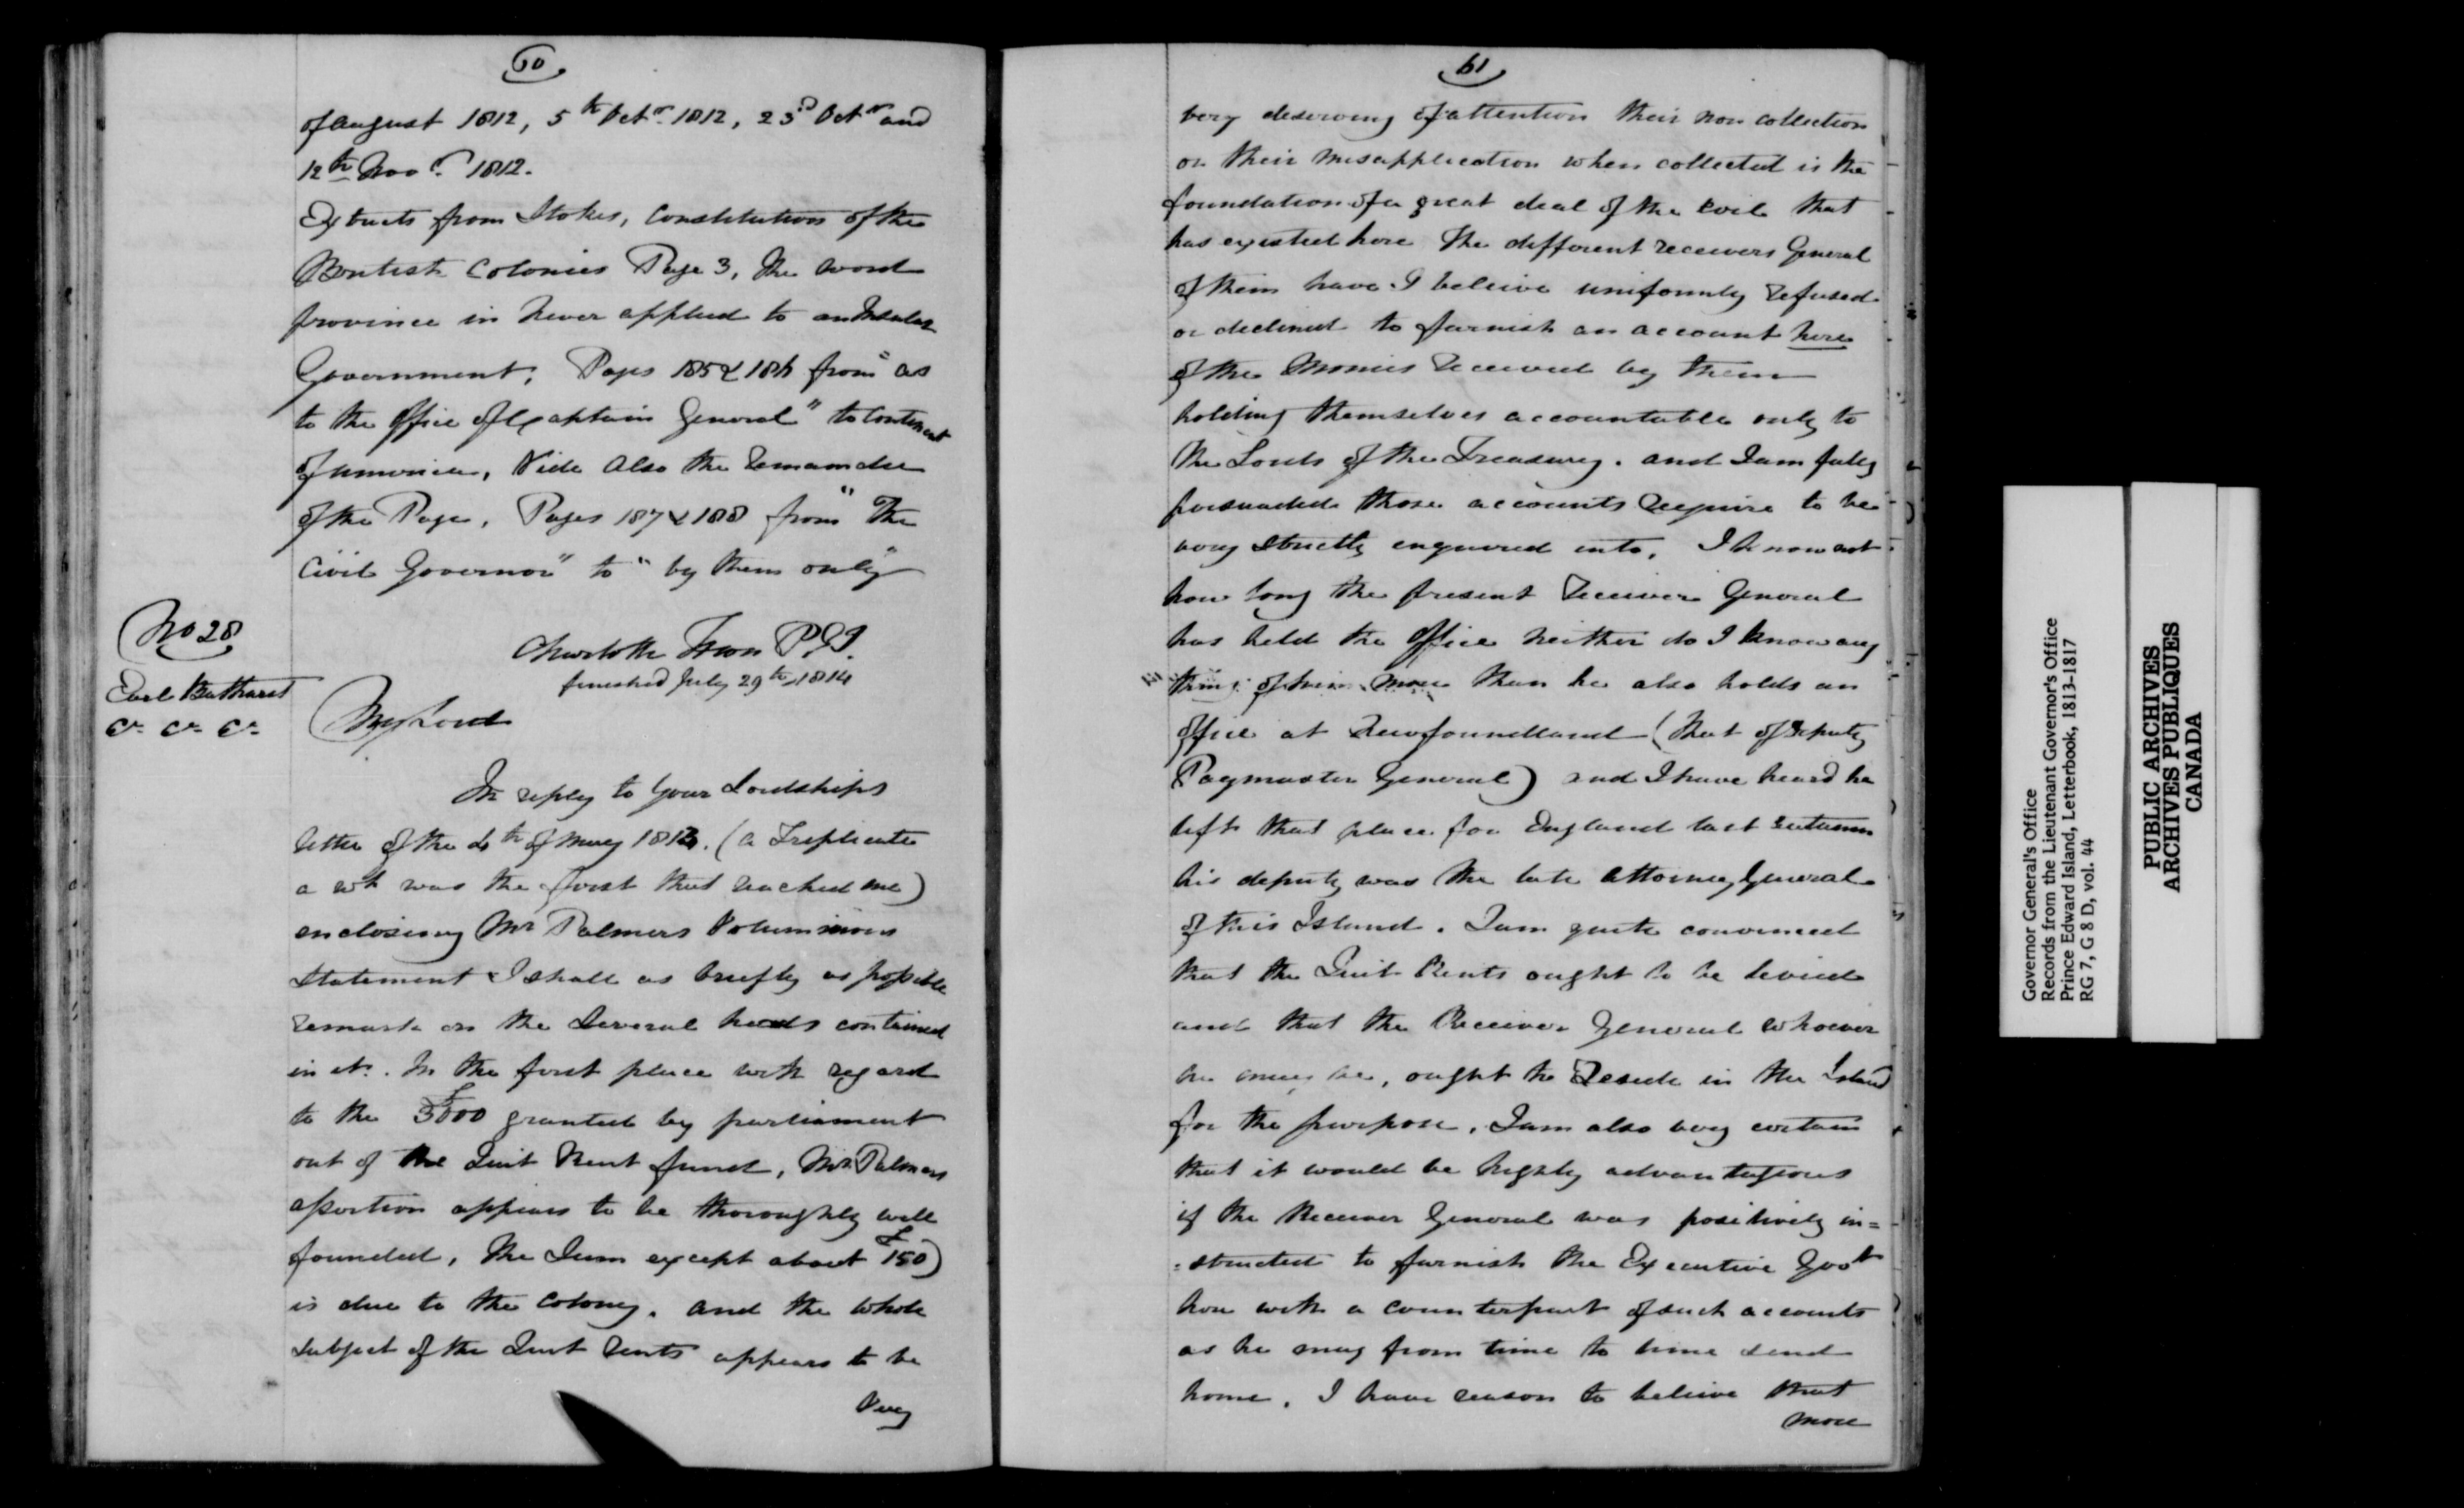 60
of August 1812, 5th Octr. 1812, 23d Octr and
12th Novr. 1812.
Extracts from Stokes, Constitution of the
British Colonies Page 3, The word
province in never applied to an Insular
Government, Pages 185 & 186 from "as
to the Office of Captain General" to Continent
of America, Vide Also the Remainder
of the Page, Pages 187 & 188 from "The
Civil Governor" to "by them only"
Charlotte Town P.E.I.
finished July 29th 1814
No 28
Earl Bathurst
&c &c &c
My Lord
In reply to your Lordships
letter of the 4th of May 1813. (a Triplicate
a wh was the first that reached me)
enclosing Mr Palmers Voluminous
Statement I shall as briefly as possible
remark on the Several heads contained
in it. In the first place with regard
to the £3000 granted by parliament
out of the Quit Rent fund, Mr Palmers
assertion appears to be thoroughly well
founded, The Sum except about £150)
is due to the Colony. and the whole
subject of the Quit Rents appears to be
Very
61
very deserving of attention their non collection
or their misapplication when collected is the
foundation of a great deal of the evil that
has existed here The different receivers General
of them have I beleive uniformly refused
or declined to furnish an account here
of the Monies received by them
holding themselves accountable only to
the Lords of the Treasury. and I am fully
persuaded those accounts require to be
very strictly enquired into, I know not
how long the present Receiver General
has held the Office neither do I know any
thing of him more than he also holds an
office at Newfoundland (that of Deputy
Paymaster General) and I have heard he
left that place for England last autumn
his deputy was the late Attorney General
of this Island. I am quite convinced
that the Quit Rents ought to be levied
and that the Receiver General whoever
he may be, ought to Reside in the Island
for the purpose, I am also very certain
that it would be highly advantageous
if the Receiver General was positively in=
=structed to furnish the Executive Govt
here with a counterpart of such accounts
as he may from time to time send
home, I have reason to believe that
more
Governor General's Office
Records from the Lieutenant Governor's Office
Prince Edward Island, Letterbook, 1813-1817
RG 7, G 8 D, vol. 44
PUBLIC ARCHIVES
ARCHIVES PUBLIQUES
CANADA